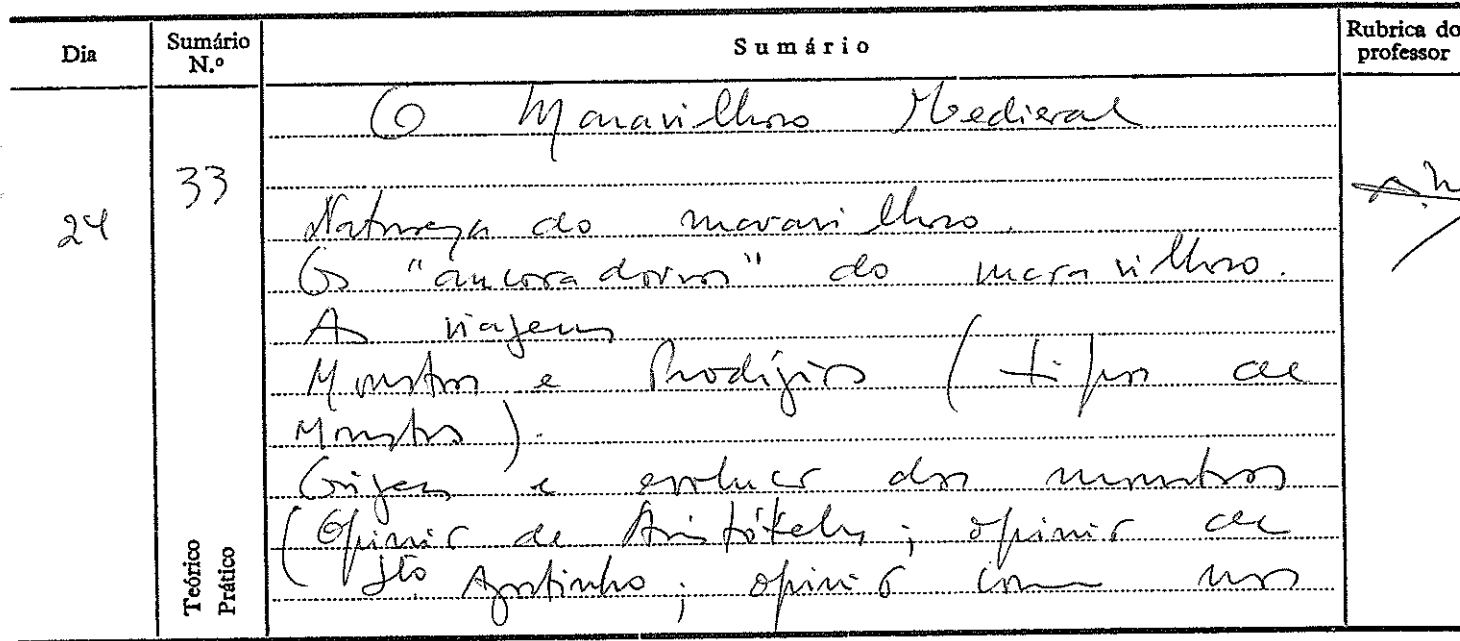 Dia
Sumário N.º
Sumário
Rubrica do professor
24
33
O Maravilhoso Medieval
Natureza do maravilhoso.
Os "ancoradouros" do maravilhoso.
As viagens
Monstros e Prodígios (tipos de
Monstros).
Origem e evolução dos monstros
(Opinião de Aristóteles; opinião de
Sto Agostinho; opinião comum nos
Teórico
Prático